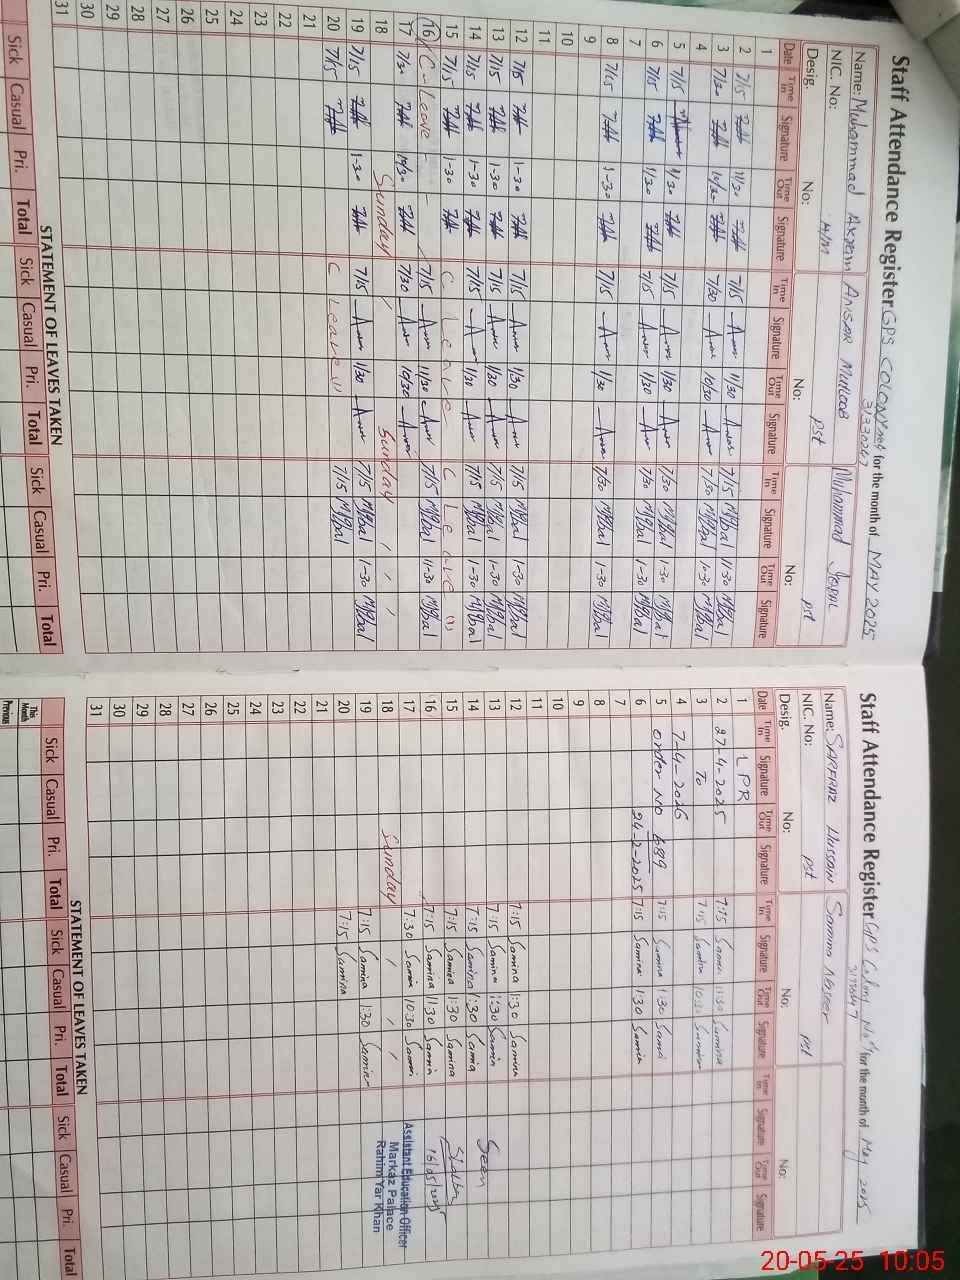 Staff Attendance Register GPS COLONY no 1 for the month of MAY 2025
Name: Muhammad Akram ANSAR Mutloob Muhammad Iqbal
NIC. No:
Desig. No: H/M No: pst No: pst
Date Time In Signature Time Out Signature Time In Signature Time Out Signature Time In Signature Time Out Signature
1
2 7/15 11/30 7/15 11/30 7/15 M/Iqbal 11-30 M/Iqbal
3 7/30 10/30 7/30 10/30 7/30 M/Iqbal 10-30 M/Iqbal
4
5 7/15 1/30 7/15 1/30 7/30 M/Iqbal 1-30 M/Iqbal
6 7/15 1/30 7/15 1/30 7/30 M/Iqbal 1-30 M/Iqbal
7
8 7/15 1-30 7/15 1/30 7/30 M/Iqbal 1-30 M/Iqbal
9
10
11
12 7/15 1-30 7/15 1/30 7/15 M/Iqbal 1-30 M/Iqbal
13 7/15 1-30 7/15 1/30 7/15 M/Iqbal 1-30 M/Iqbal
14 7/15 1-30 7/15 1/30 7/15 M/Iqbal 1-30 M/Iqbal
15 7/15 1-30 7/15 C Leave C Leave (1)
16 C Leave 7/15 11/30 7/15 M/Iqbal 11-30 M/Iqbal
17 7/30 10/30 7/30 10/30
18 Sunday Sunday
19 7/15 1-30 7/15 1/30 7/15 M/Iqbal 1-30 M/Iqbal
20 7/15 C Leave 7/15 M/Iqbal
21
22
23
24
25
26
27
28
29
30
31
STATEMENT OF LEAVES TAKEN
Sick Casual Pri. Total Sick Casual Pri. Total Sick Casual Pri. Total
Staff Attendance Register GPS Colony No 1 for the month of May 2025
Name: SARFRAZ Hussain Samina Naseer
NIC. No:
Desig. No: pst No: pst No:
Date Time In Signature Time Out Signature Time In Signature Time Out Signature Time In Signature Time Out Signature
1 LPR
2 27-4-2025 7:15 Samina 11:30 Samina
3 To 7:15 Samina 10:30 Samina
4 7-4-2026
5 order No 689 7:15 Samina 1:30 Samina
6 24-2-2025 7:15 Samina 1:30 Samina
7
8
9
10
11
12 7:15 Samina 1:30 Samina
13 7:15 Samina 1:30 Samina
14 7:15 Samina 1:30 Samina Seen
15 7:15 Samina 1:30 Samina
16 7:15 Samina 11:30 Samina 16/05/2025
17 7:30 Samina 10:30 Samina
18 Sunday
19 7:15 Samina 1:30 Samina
20 7:15 Samina
21
22
23
24
25
26
27
28
29
30
31
Assistant Education Officer
Markaz Palace
Rahim Yar Khan
STATEMENT OF LEAVES TAKEN
Sick Casual Pri. Total Sick Casual Pri. Total Sick Casual Pri. Total
This Month
Previous
20-05-25 10:05